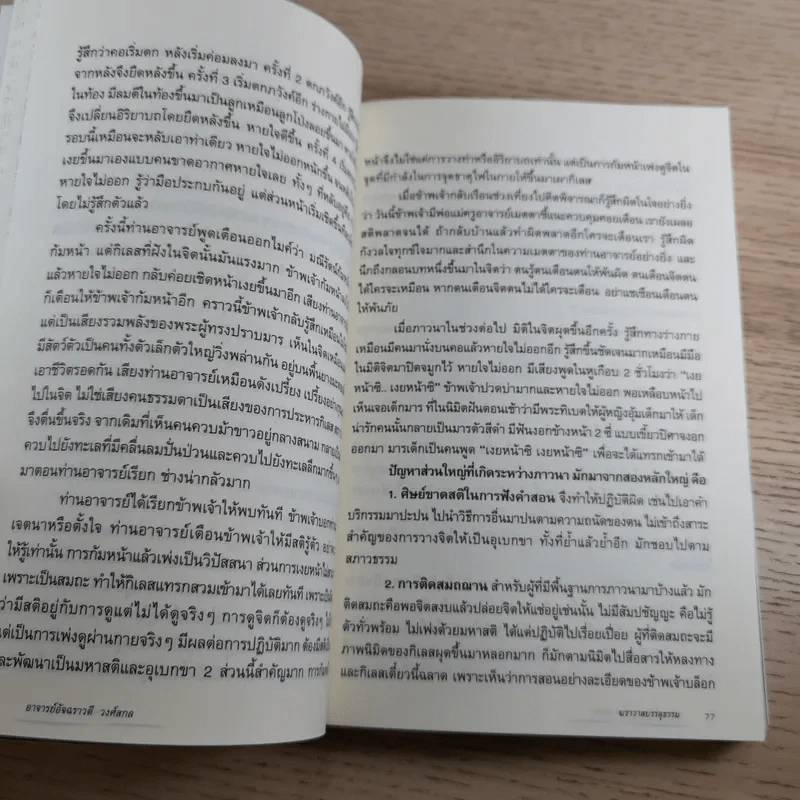 รู้สึกว่าคอเริ่มตก หลังเริ่มค่อมลงมา ครั้งที่ 2 ตกภวังค์อีก
จากหลังจึงยืดหลังขึ้น ครั้งที่ 3 เริ่มตกภวังค์อีก ร่างกาย
ในท้อง มีลมตีในท้องขึ้นมาเป็นลูกเหมือนลูกโป่งลอยขึ้นมา
จึงเปลี่ยนอิริยาบถโดยยืดหลังขึ้น หายใจดีขึ้น ครั้งที่ 4
รอบนี้เหมือนจะหลับเอาท่าเดียว หายใจไม่ออกหนักขึ้น
เงยขึ้นมาเองแบบคนขาดอากาศหายใจเลย ทั้งๆ ที่หลับอยู่
หายใจไม่ออก รู้ว่ามือประกบกันอยู่ แต่ส่วนหน้าเริ่มเชิดขึ้น
โดยไม่รู้สึกตัวแล้ว
ครั้งนี้ท่านอาจารย์พูดเตือนออกไมค์ว่า มณีรัตน์
ก้มหน้า แต่กิเลสที่ฝังในจิตนั้นมันแรงมาก ข้าพเจ้าก้มหน้า
แล้วหายใจไม่ออก กลับค่อยเชิดหน้าเงยขึ้นมาอีก เสียงท่าน
ก็เตือนให้ข้าพเจ้าก้มหน้าอีก คราวนี้ข้าพเจ้ากลับรู้สึกเหมือน
แต่เป็นเสียงรวมพลังของพระผู้ทรงปราบมาร เห็นในจิตเหมือน
มีสัตว์ตัวเป็นคนทั้งตัวเล็กตัวใหญ่วิ่งพล่านกัน อยู่บนพื้น
เอาชีวิตรอดกัน เสียงท่านอาจารย์เหมือนดังเปรี้ยง เปรี้ยง
ไปในจิต ไม่ใช่เสียงคนธรรมดาเป็นเสียงของการประหารกิเลส
จึงตื่นขึ้นจริง จากเดิมที่เห็นคนควบม้าขาวอยู่กลางสนาม
ควบไปยังทะเลที่มีคลื่นลมปั่นป่วนและควบไปยังทะเลลึกมากขึ้น
มาตอนท่านอาจารย์เรียก ช่างน่ากลัวมาก
ท่านอาจารย์ได้เรียกข้าพเจ้าให้พบทันที ข้าพเจ้าบอก
เจตนาหรือตั้งใจ ท่านอาจารย์เตือนข้าพเจ้าให้มีสติรู้ตัว
ให้รู้เท่านั้น การก้มหน้าแล้วเพ่งเป็นวิปัสสนา ส่วนการเงยหน้า
เพราะเป็นสมถะ ทำให้กิเลสแทรกสวมเข้ามาได้เลยทันที
ว่ามีสติอยู่กับการดูแต่ไม่ได้ดูจริงๆ การดูจิตก็ต้องดูจริงๆ
แต่เป็นการเพ่งดูผ่านกายจริงๆ มีผลต่อการปฏิบัติมาก
ละพัฒนาเป็นมหาสติและอุเบกขา 2 ส่วนนี้สำคัญมาก
อาจารย์อัจฉราวดี วงศ์สกล
หน้าจึงไม่ใช่แค่การวางท่าหรืออิริยาบถเท่านั้น แต่เป็นการก้มหน้าเพ่งดูจิตใน
จุดที่มีกำลังในการจุดธาตุไฟในกายให้ขึ้นมาเผากิเลส
เมื่อข้าพเจ้ากลับเรือนช่วงเที่ยงไปคิดพิจารณาก็รู้สึกผิดในใจอย่างยิ่ง
ว่า วันนี้ข้าพเจ้ามีพ่อแม่ครูอาจารย์เมตตาชี้แนะควบคุมคอยเตือน เรายังเผลอ
สติพลาดจนได้ ถ้ากลับบ้านแล้วทำผิดพลาดอีกใครจะเตือนเรา รู้สึกผิด
กังวลใจทุกข์ใจมากและสำนึกในความเมตตาของท่านอาจารย์อย่างยิ่ง และ
นึกถึงกลอนบทหนึ่งขึ้นมาในจิตว่า ตนรู้ตนเตือนตนให้พ้นผิด ตนเตือนจิตตน
ได้ใครจะเหมือน หากตนเตือนจิตตนไม่ได้ใครจะเตือน อย่าแชเชือนเตือนตน
ให้พ้นภัย
เมื่อภาวนาในช่วงต่อไป มิติในจิตผุดขึ้นอีกครั้ง รู้สึกทางร่างกาย
เหมือนมีคนมานั่งบนคอแล้วหายใจไม่ออกอีก รู้สึกขึ้นชัดเจนมากเหมือนมีมือ
ในมิติจิตมาปิดจมูกไว้ หายใจไม่ออก มีเสียงพูดในหูเกือบ 2 ชั่วโมงว่า "เงย
หน้าซิ.. เงยหน้าซิ" ข้าพเจ้าปวดบ่ามากและหายใจไม่ออก พอเหลือบหน้าไป
เห็นเจอเด็กมาร ที่ในนิมิตฝันตอนเช้าว่ามีพระทิเบตให้ผู้หญิงอุ้มเด็กมาให้ เด็ก
น่ารักคนนั้นกลายเป็นมารตัวสีดำ มีฟันงอกข้างหน้า 2 ซี่ แบบเขี้ยวปีศาจงอก
ออกมา มารเด็กเป็นคนพูด "เงยหน้าซิ เงยหน้าซิ" เพื่อจะได้แทรกเข้ามาได้
ปัญหาส่วนใหญ่ที่เกิดระหว่างภาวนา มักมาจากสองหลักใหญ่ คือ
1. ศิษย์ขาดสติในการฟังคำสอน จึงทำให้ปฏิบัติผิด เช่นไปเอาคำ
บริกรรมมาปะปน ไปนำวิธีการอื่นมาปนตามความถนัดของตน ไม่เข้าถึงสาระ
สำคัญของการวางจิตให้เป็นอุเบกขา ทั้งที่ย้ำแล้วย้ำอีก มักชอบไปตาม
สภาวธรรม
2. การติดสมถฌาน สำหรับผู้ที่มีพื้นฐานการภาวนามาบ้างแล้ว มัก
ติดสมถะคือพอจิตสงบแล้วปล่อยจิตให้แช่อยู่เช่นนั้น ไม่มีสัมปชัญญะ คือไม่รู้
ตัวทั่วพร้อม ไม่เพ่งด้วยมหาสติ ได้แค่ปฏิบัติไปเรื่อยเปื่อย ผู้ที่ติดสมถะจะมี
ภาพนิมิตของกิเลสผุดขึ้นมาหลอกมาก ก็มักตามนิมิตไปสื่อสารให้หลงทาง
และกิเลสเดี๋ยวนี้ฉลาด เพราะเห็นว่าการสอนอย่างละเอียดของข้าพเจ้าบล็อก
ฆราวาสบรรลุธรรม 77